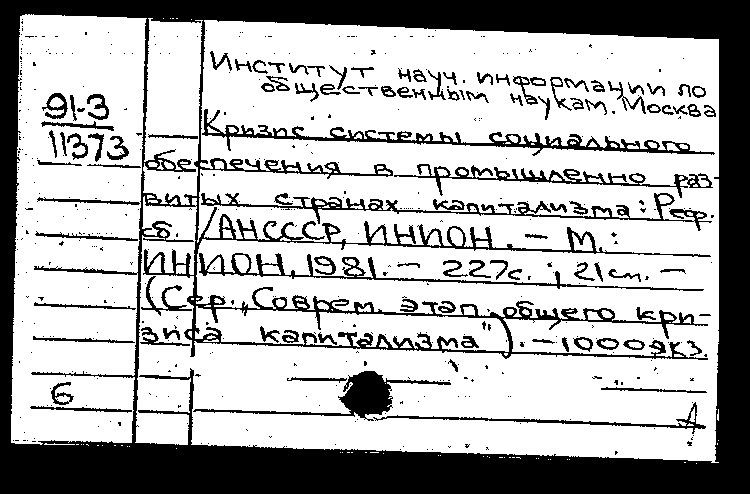 Институт науч. информации по
общественным наукам. Москва
91-3
11373
Кризис системы социального
обеспечения в промышленно раз-
витых странах капитализма: Реф.
сб. / АН СССР, ИНИОН. - М.:
ИНИОН, 1981. - 227с.; 21см. -
(Сер. "Соврем. этап общего кри-
зиса капитализма"). - 1000экз.
6
А